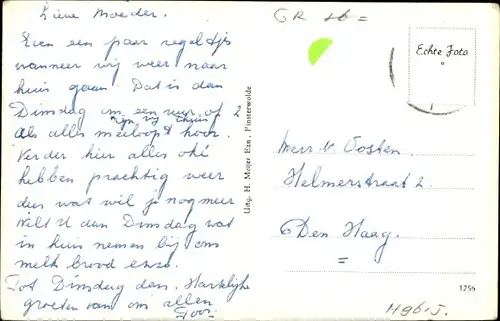 Lieve Moeder.
Even een paar regeltjes
wanneer wij weer naar
huis gaan. Dat is dan
Dinsdag om een uur of 2
zijn wij thuis
als alles meeloopt hoor.
Verder hier alles oké
hebben prachtig weer
dus wat wil je nog meer
Wilt U dan Dinsdag wat
in huis nemen bij ons
melk brood enzo.
Tot Dinsdag dan. Hartelijke
groeten van ons allen
Toos.
Uitg. H. Meijer Ezn. Finsterwolde
GR
Echte Foto
Mevr. v. Oosten.
Helmerstraat 2
Den Haag.
=
1259
H9615.